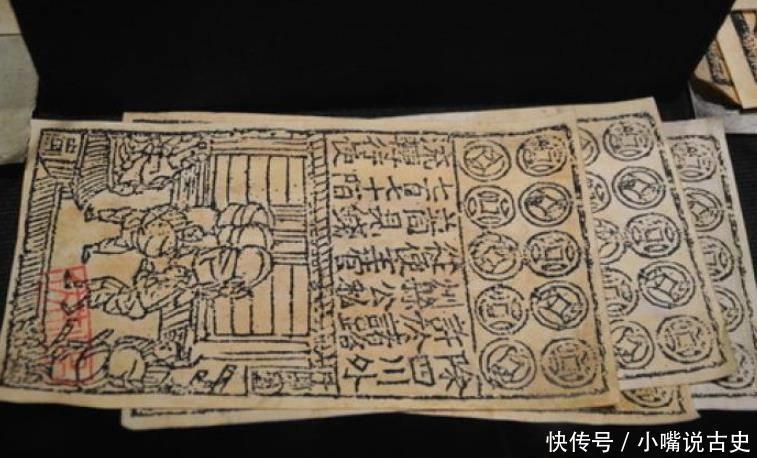 除四川外
許於諸路
州縣公私
從便主管
並同見錢
七百七十陌
流轉行使
快传号 / 小嘴说古史